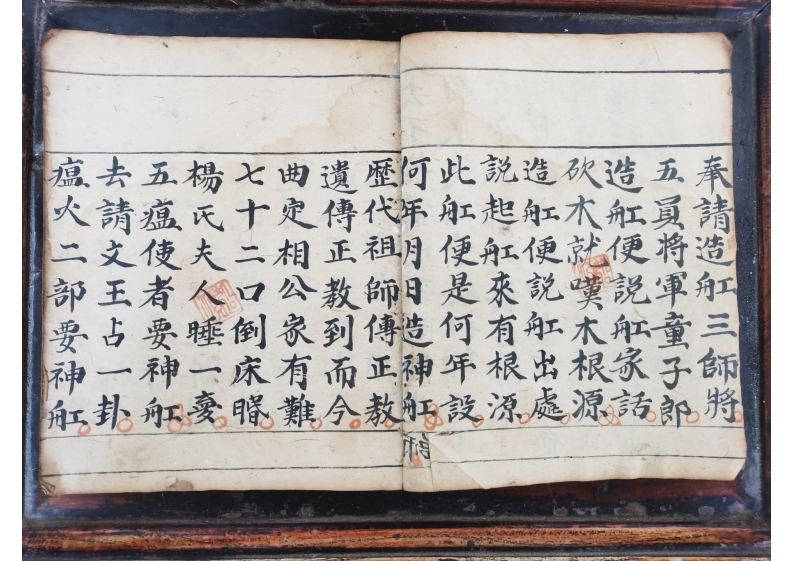 奉請造舡三師將
五員將軍童子郎
造舡便說舡家話
砍木就嘆木根源
造舡便說舡出處
說起舡來有根源
此舡便是何年設
何年月日造神舡
歷代祖師傳正教
遺傳正教到而今
曲定相公家有難
七十二口倒床眠
楊氏夫人睡一夢
五瘟使者要神舡
去請文王占一卦
瘟火二部要神舡